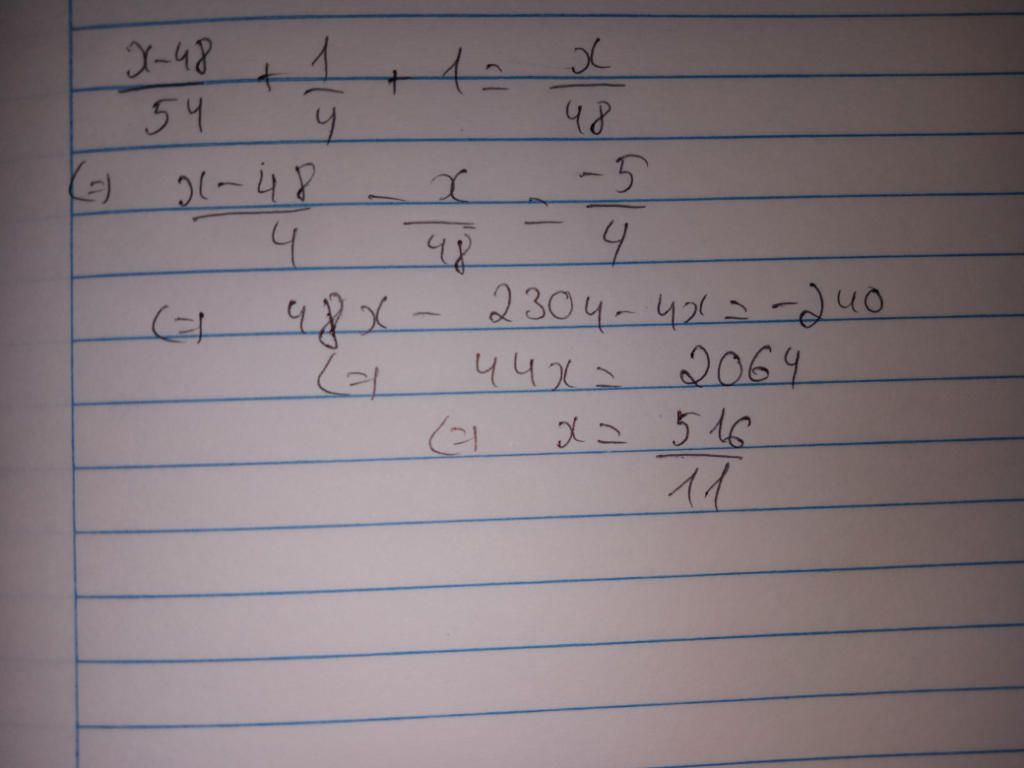 (x-48)/54 + 1/4 + 1 = x/48
(=) (x-48)/4 - x/48 = -5/4
(=) 48x - 2304 - 4x = -240
(=) 44x = 2064
(=) x = 516/11